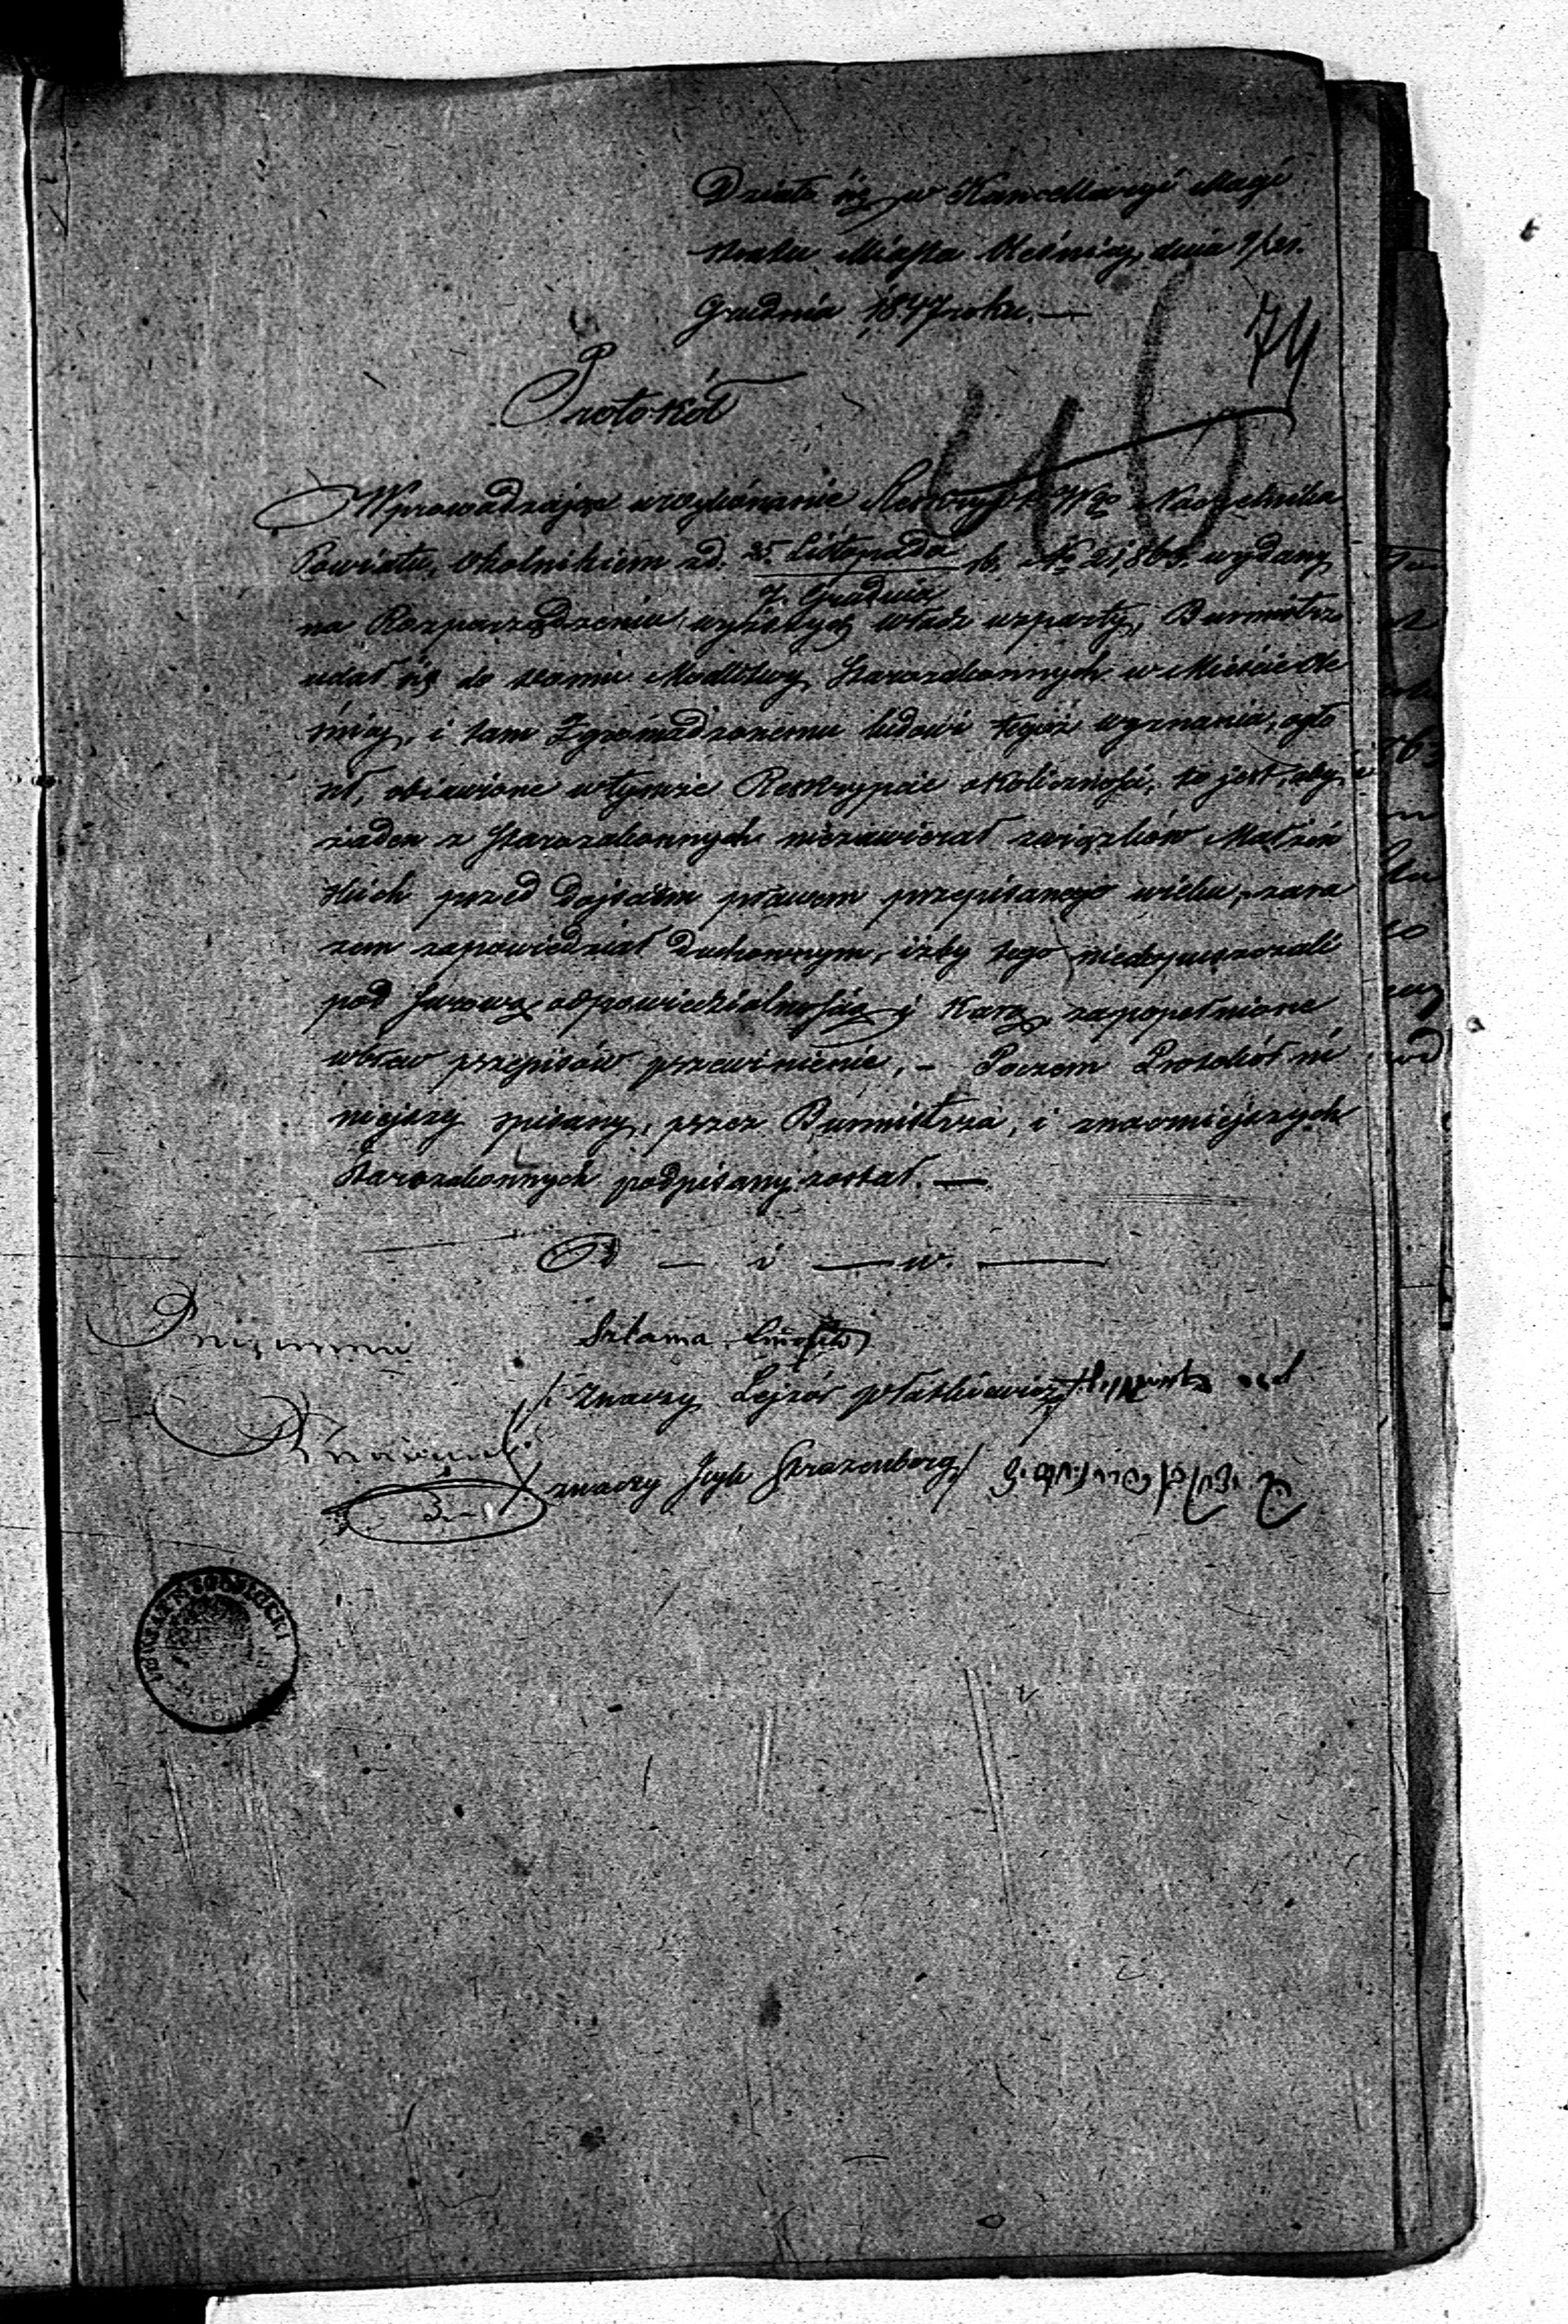 Działo się w Kancellaryi Magi
stratu Miasta Oleśnicy, dnia 9/21.
Grudnia 1847 roku. —
74
46
Protokół
Wprowadzając w wykonanie Reskrypt Wgo Naczelnika
Powiatu, Okolnikiem z d. 25. Listopada / 7. Grudnia r b. No 21,863. wydany
na Rozporządzeniu wyższych władz wsparty, Burmistrz
udał się do domu Modlitwy Starozakonnych w Mieście Ole
śnicy, i tam Zgromadzonemu ludowi tegoż wyznania, ogło
sił, obiawione w tymże Reskrypcie okoliczności, to jest, aby
żaden z Starozakonnych niezawierał związków Małżeń
skich przed dojściem prawem przepisanego wieku, zara
zem zapowiedział Duchownym, iżby tego niedopuszczali
pod surową odpowiedzialnością i karą, za popełnione
wbrew przepisów przewinienie, – Poczem Protokół ni
niejszy spisany, przez Burmistrza, i znacniejszych
Starozakonnych podpisany został. —
P — i — w. —
Szlama
znaczy Lejzór
znaczy Icyk Strozenberg